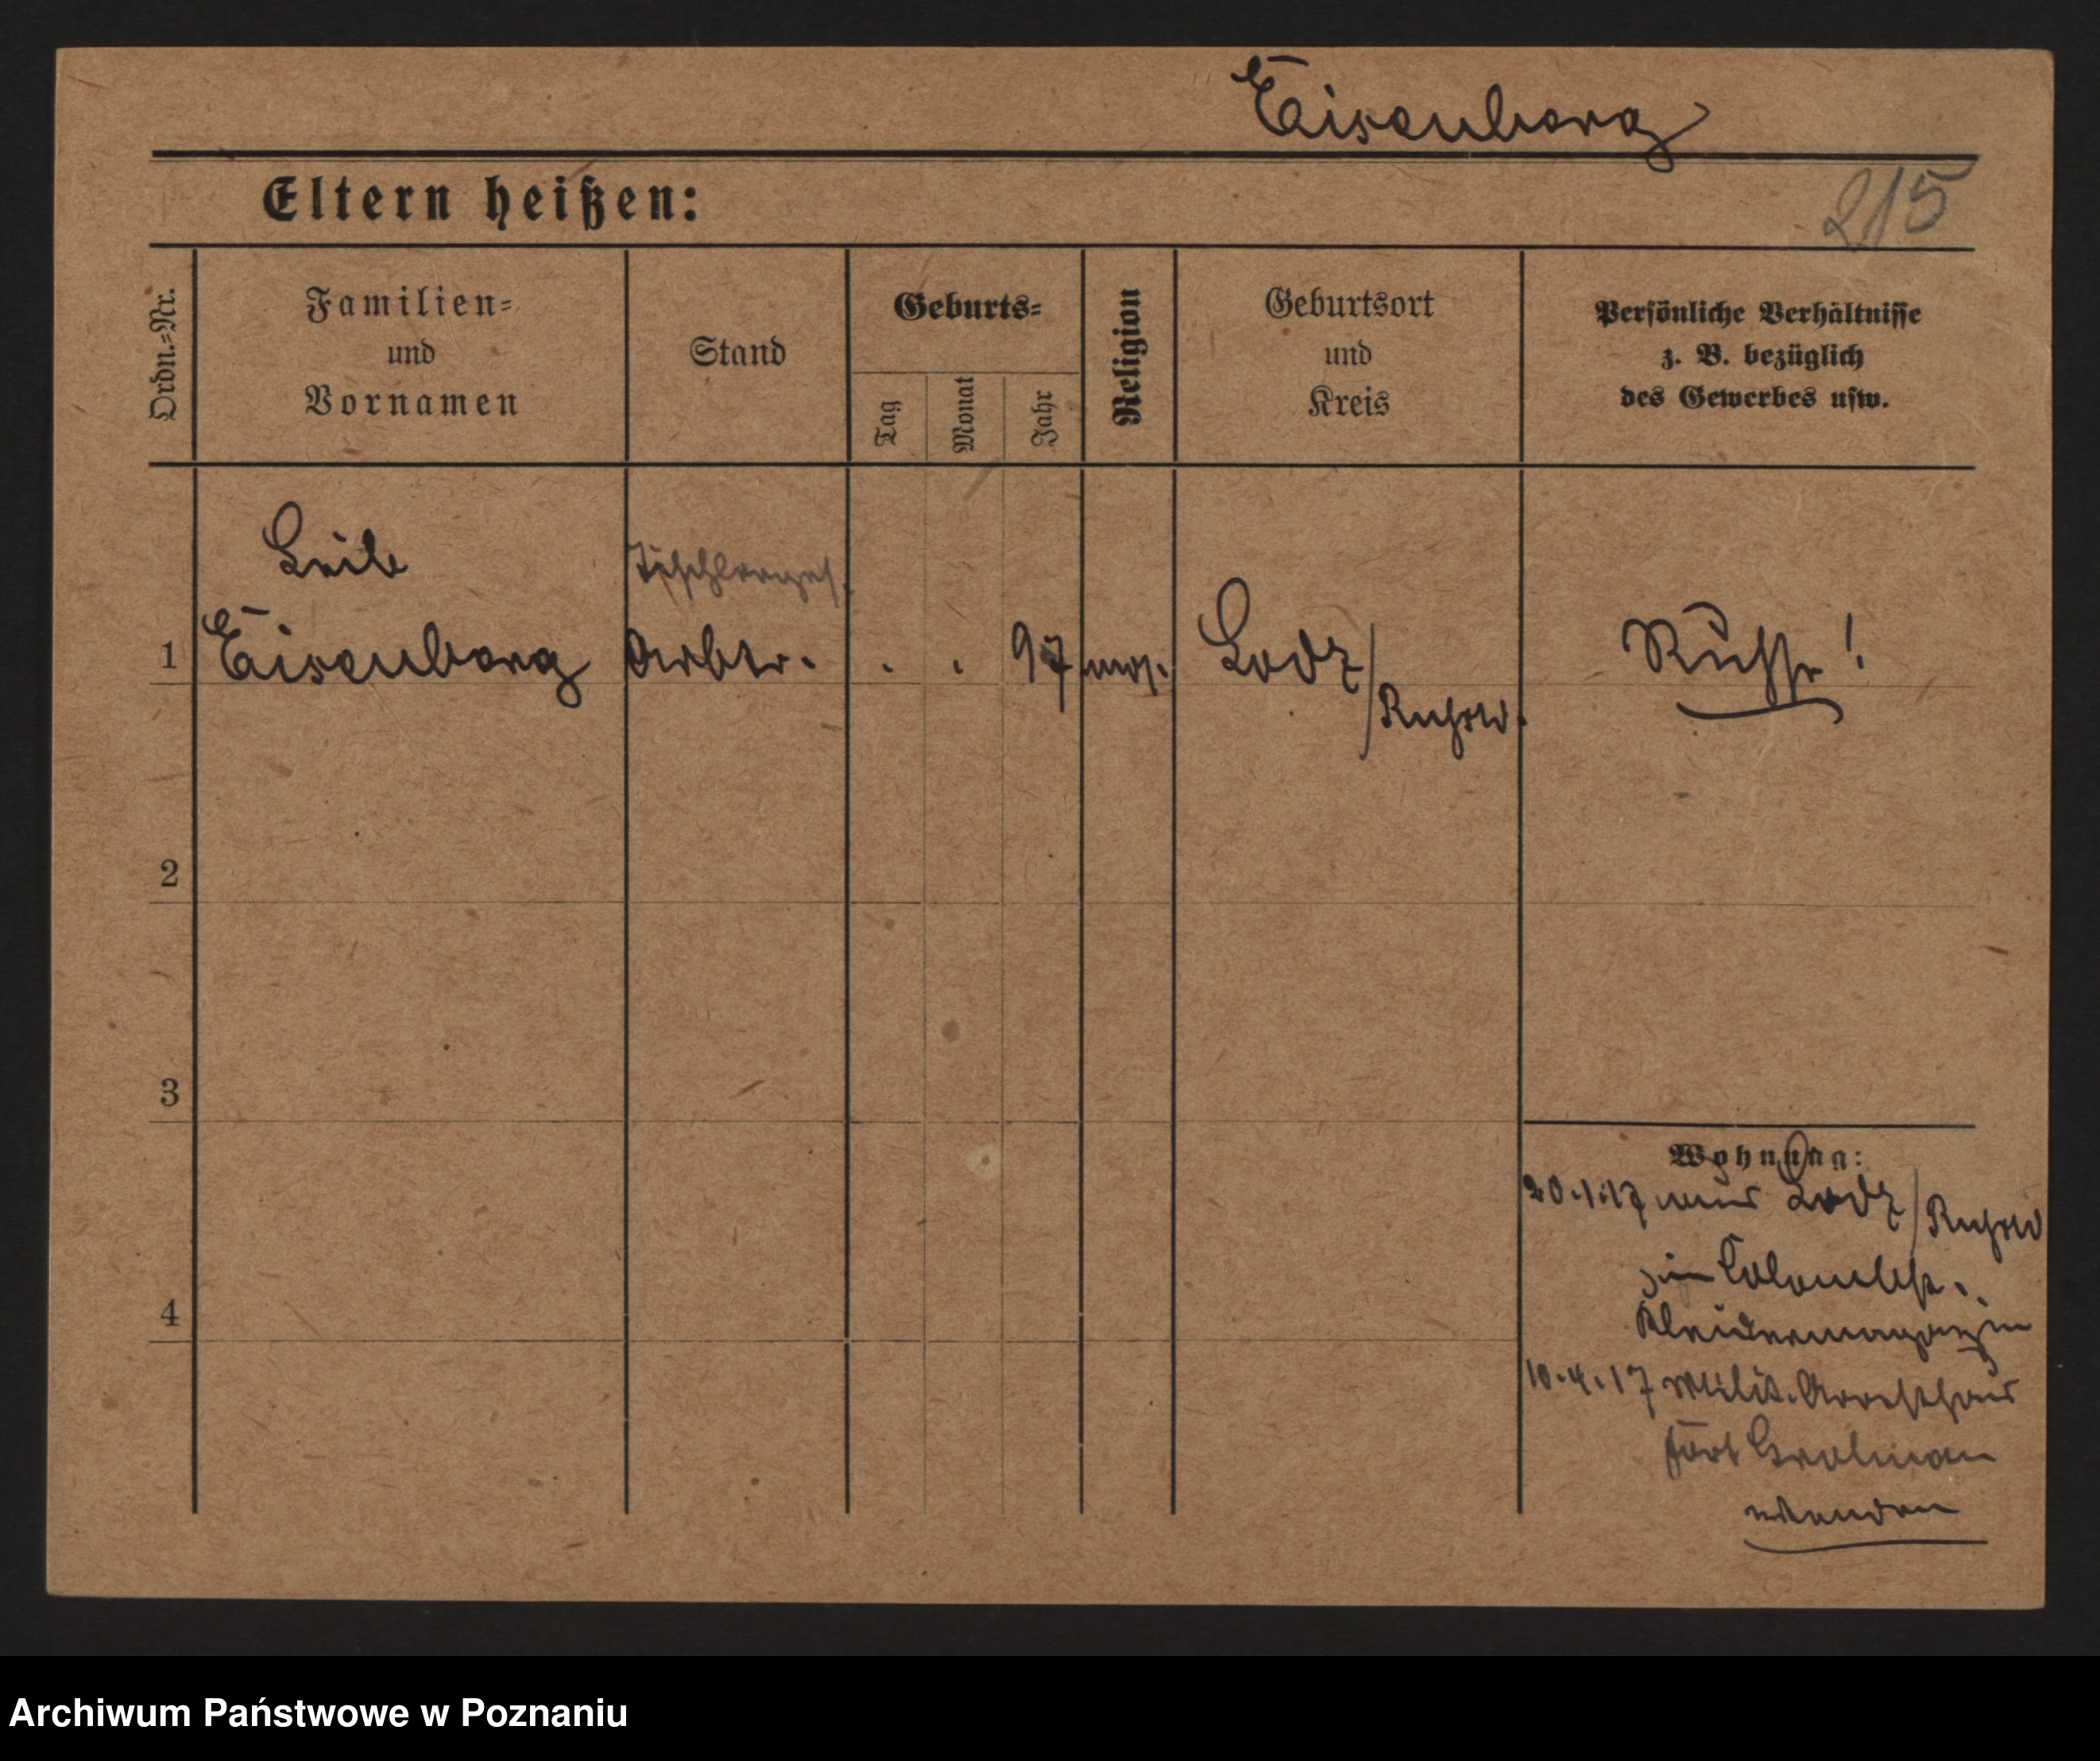 Eisenberg
Eltern heißen:
215
Ordn.=Nr.
Familien=
und
Vornamen
Stand
Geburts=
Tag
Monat
Jahr
Religion
Geburtsort
und
Kreis
Persönliche Verhältnisse
z. B. bezüglich
des Gewerbes usw.
Leib
Tischlerges.
1 Eisenberg Arbtr. . . 97 mos. Lodz/ Russe!
Rußld.
2
3
4
Wohnung:
20.1.17 aus Lodz/Rußld
im
Kleidermagazin
10.4.17 Milit. Arresthaus
Fort Grolman